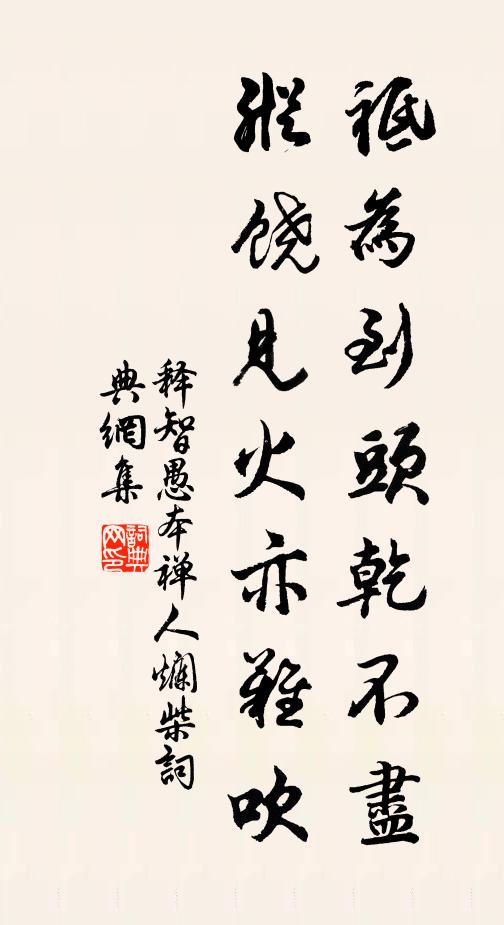 祗為到頭乾不盡
縱饶見火亦難吹
释智愚本禅人爛柴詞
典網集
詞典
网印